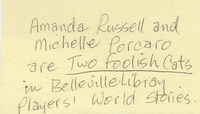 Amanda Russell and
Michelle Forcaro
are Two Foolish Cats
in Belleville Library
Players' World Stories.